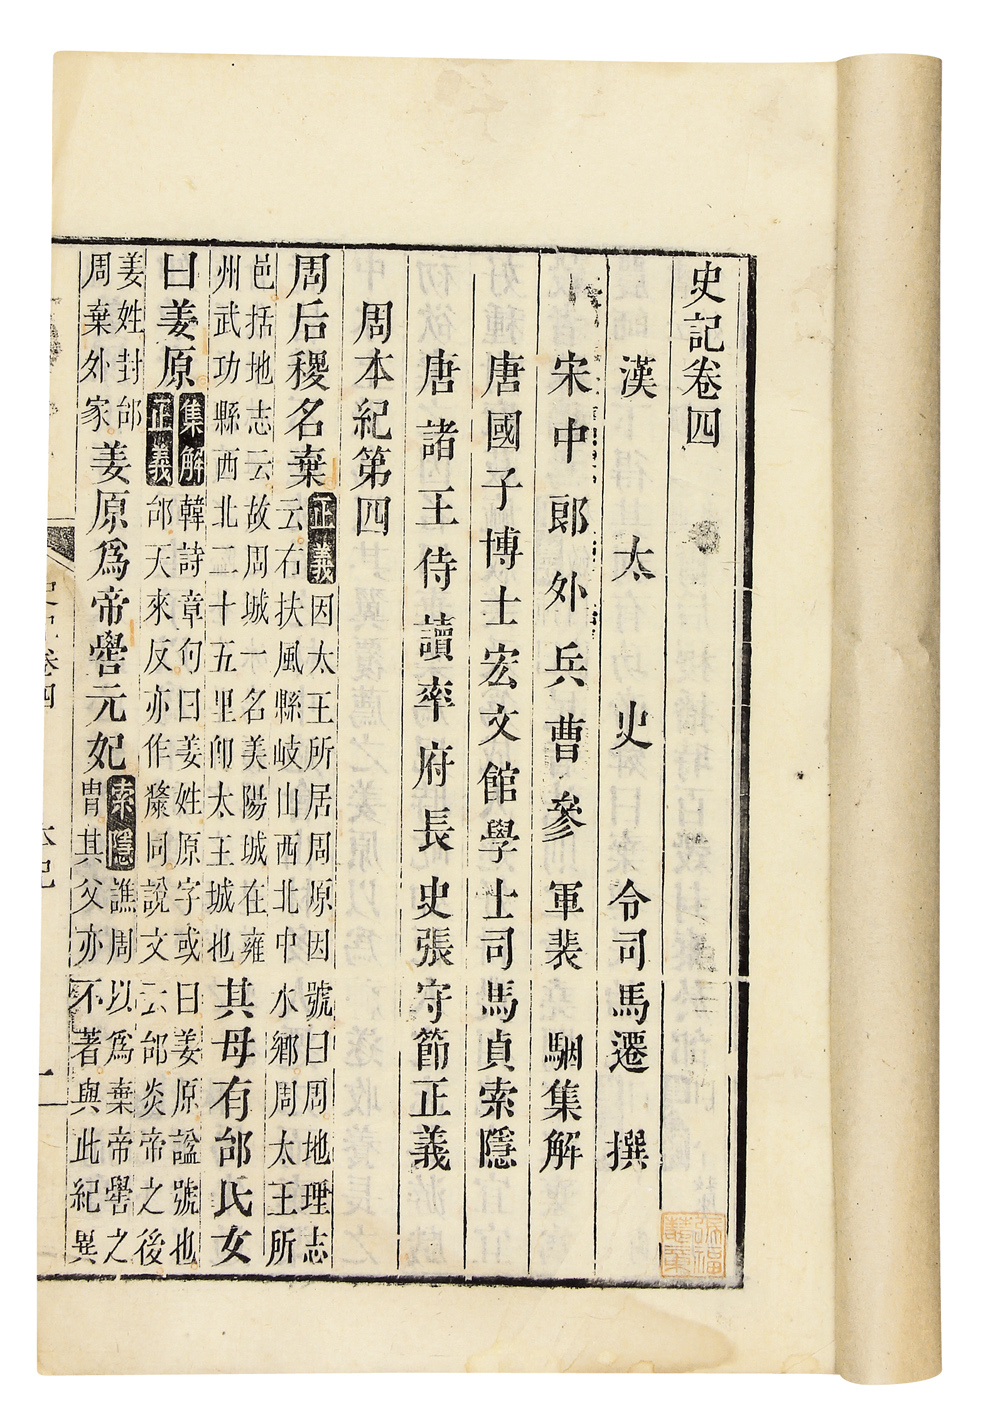 史記卷四
漢太史令司馬遷撰
宋中郎外兵曹參軍裴駰集解
唐國子博士宏文館學士司馬貞索隱
唐諸王侍讀率府長史張守節正義
周本紀第四
周后稷名棄
正義因太王所居周原因號曰周地理志
云右扶風縣岐山西北中水鄉周太王所
邑括地志云故周城一名美陽城在雍
州武功縣西北二十五里卽太王城也
其母有邰氏女
曰姜原
集解韓詩章句曰姜姓原字或曰姜原諡號也
正義邰天來反亦作斄同說文云邰炎帝之後
姜姓封邰
周棄外家
姜原爲帝嚳元妃
索隱譙周以爲棄帝嚳之
冑其父亦不著與此紀異
卷四
本紀